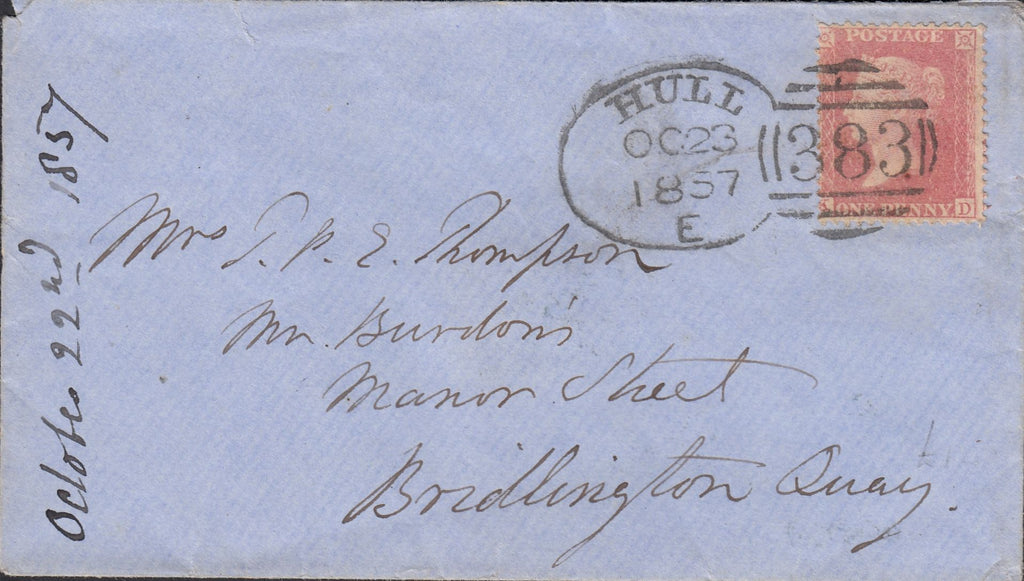 October 22nd 1857
POSTAGE
HULL
OC23
1857
E
383
ONE PENNY D
Mrs T. P. E. Thompson
Mr. Burdon's
Manor Street
Bridlington Quay.